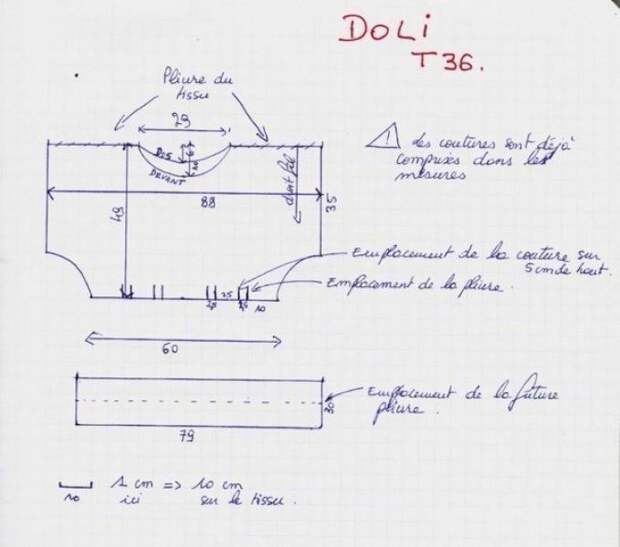 DOLI
T36.
Pliure du
tissu
29
DOS
6
10
DEVANT
droit fil
88
49
35
⚠ Les coutures sont déjà
comprises dans les
mesures
Emplacement de la couture sur
5cm de haut.
Emplacement de la pliure.
2,5
10
60
Emplacement de la future
pliure.
30
79
1 cm => 10 cm
10 ici sur le tissu.